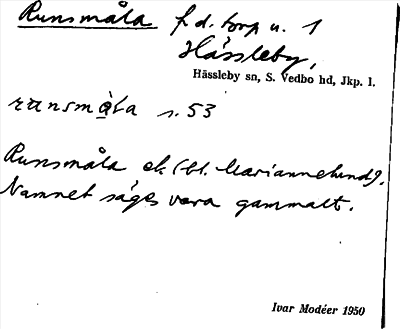 Runsmåla f.d. torp u. 1
Hässleby,
Hässleby sn, S. Vedbo hd, Jkp. l.
runsmåla s. 53
Runsmåla ek (bl. Mariannelund).
Namnet säges vara gammalt.
Ivar Modéer 1950